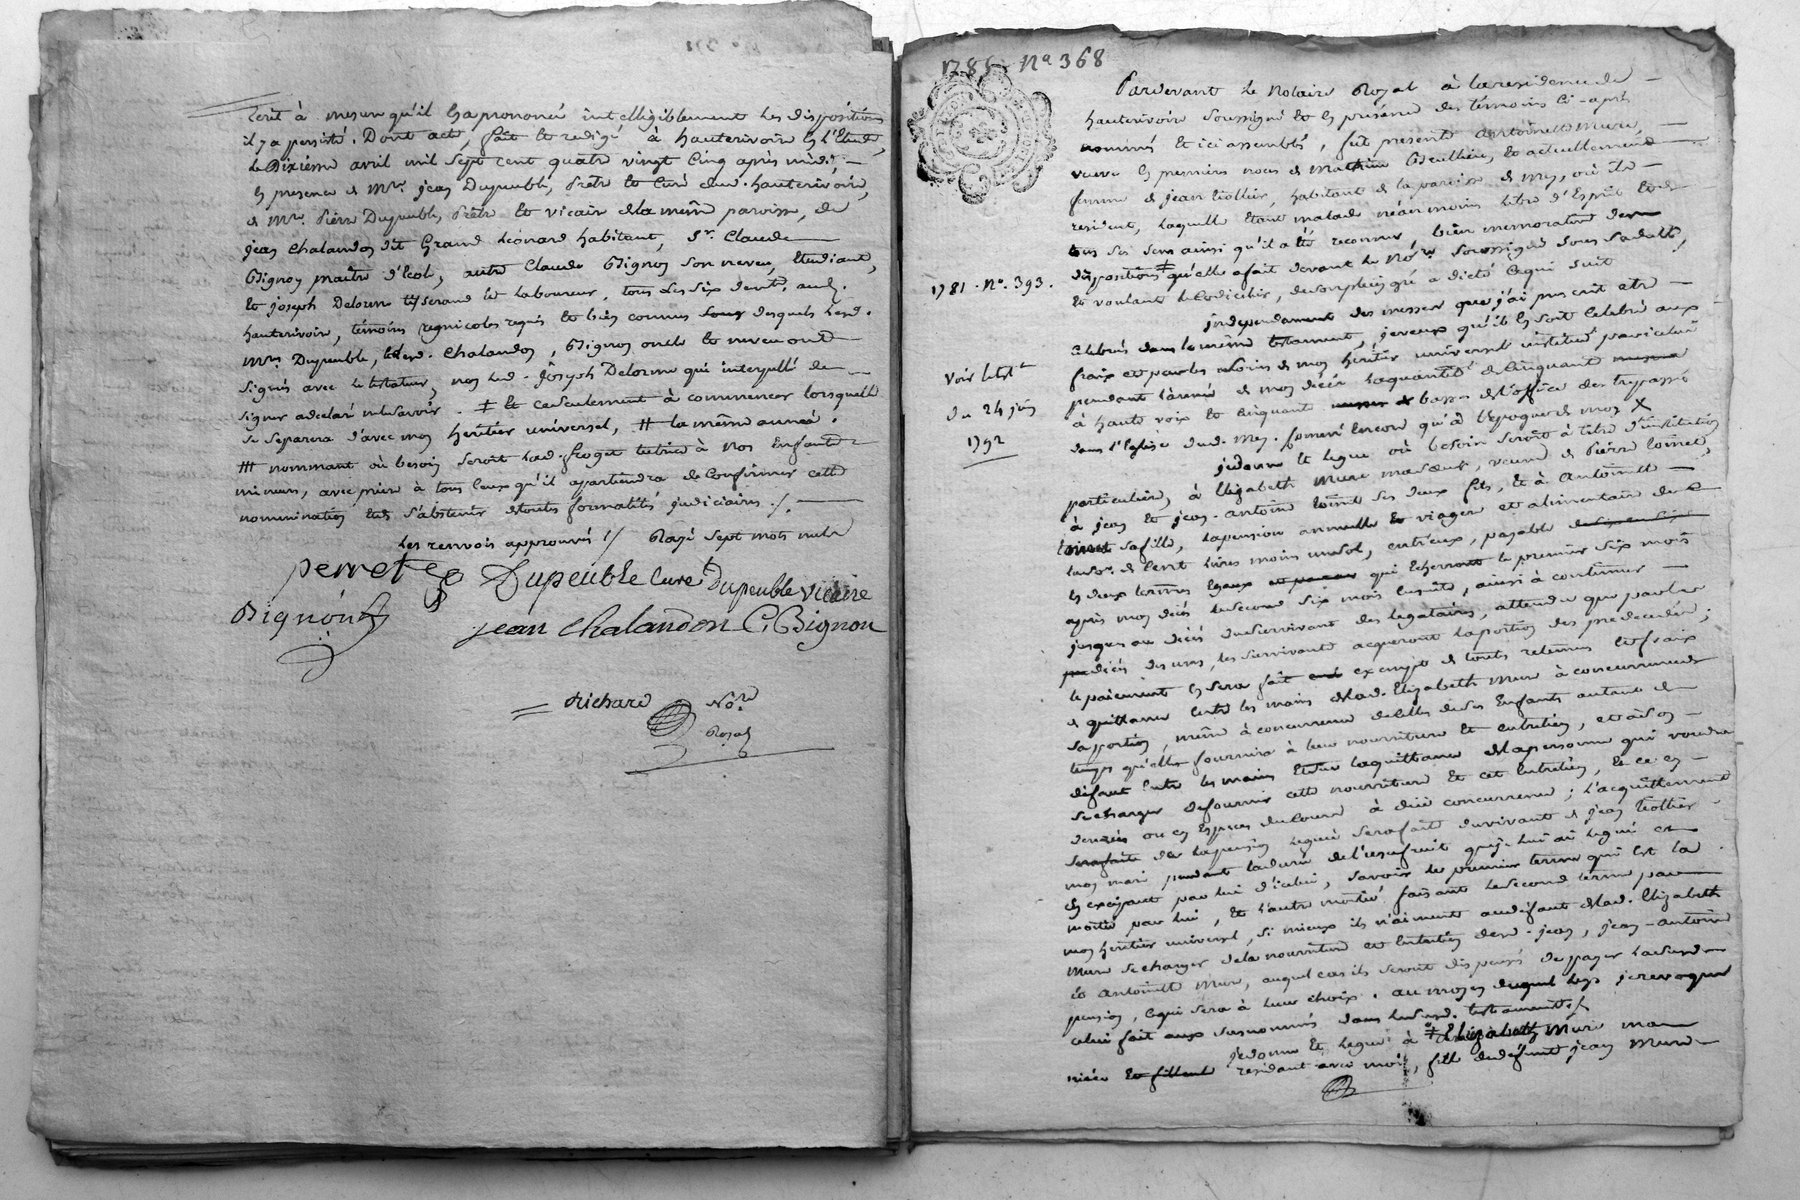 Ecrit à mesure qu'il les a prononcé intelligiblement les dispositions
il y a persisté. Dont acte, fait et redigé à hauterivoire En l'Etude,
Le Dixième avril mil sept cent quatre vingt Cinq après midi –
En presence de Mre. jean Dupeuble, Prêtre et Curé dud. hauterivoire,
de Mre. Pierre Dupeuble, Prêtre et vicaire de la même paroisse, de
jean Chalandon dit Grand Léonard habitant, Sr. Claude
Bignon maitre d'Ecole, autre Claude Bignon Son neveu, Etudiant,
Et joseph Delorme tisserand et Laboureur, tous Les Six demt. aud.
hauterivoire, témoins regnicoles requis et bien connus desquels lesd.
Mres. Dupeuble, Led. Chalandon, Bignon oncle et neveu ont
Signés avec le testateur, non led. joseph Delorme qui interpellé de
Signer a declaré ne le Savoir. ‡ Et Seulement à commencer lorsquelle
Se Separera d'avec mon heritier universel, # la même année.
# nommant où besoin Seroit lad. froget tutrice à nos Enfants
mineurs, avec priere à tous Ceux qu'il apartiendra de Confirmer cette
nomination Et de S'abstenir de toutes formalités judiciaires ./.
Les renvois approuvés // Rayé Sept mots nuls
perret Dupeuble Curé Dupeuble vicaire
Bignon
jean Chalandon C. Bignon
Richard Nore.
Royal
1785 Nº 368
Pardevant Le Notaire Royal à la residence de
hauterivoire Soussigné Et En présence des témoins Ci-après
nommés Et ici assemblés, fut presente antoinette Mure,
veuve En premieres noces de Mathieu et actuellement
femme de jean tiollier, habitant de la paroisse de Mey, où Elle
resident, Laquelle Etant malade néanmoins libre d'Esprit Et de
tous Ses Sens ainsi qu'il a Eté reconnu, bien memorative des
dispositions ‡ qu'elle a fait devant le Nore. Soussigné Sous Sa datte,
Et voulant Codiciler, de Son plein gré a dicté Ce qui Suit
1781. Nº. 393.
independament des messes que j'ai prescrit etre
Célébrés dans le même testament, je veux qu'il En Soit Celebré aux
frais et par les Soins de mon heritier universel institué par icelui
pendant l'année de mon décès La quantité de Cinquante
à haute voix Et Cinquante basses de l'office des trepassés
dans l'Eglise dud. Mey.
Voir le tt.
du 24 juin
1792
je donne Et legue où besoin Seroit à titre d'institution
particuliere, à Elizabeth Mure ma Sœur, veuve de Pierre Loinet,
à jean Et jean-antoine Loinet Ses deux fils, Et à antoinette
Sa fille, La pension annuelle Et viagere et alimentaire de la
Some. de Cent livres moins un Sol, entr'eux, payable
En deux termes Egaux qui Echerront le premier Six mois
après mon décès Le Second Six mois Ensuite, ainsi à continuer
jusques au décès du Survivant des legataires, attendu que par le
décès des uns, les Survivants acquerront la portion des predecedés;
le paiement En Sera fait exempt de toutes retenues Et frais
de quittance Entre les mains de lad. Elizabeth Mure à concurrence de
Sa portion, même à concurrence de Celles de Ses Enfants autant de
temps qu'elle fournira à leur nourriture Et entretien, et à Son
défaut Entre les mains Et Sur la quittance de la personne qui voudra
Se charger de fournir cette nourriture Et cet Entretien, Et ce En
denrées ou En Especes du Cours à due concurrence; L'acquittement
de la pension leguée Sera fait du vivant de jean tiollier
mon mari pendant la durée de l'usufruit que je lui ai legué et
En exerçant par lui d'icelui, Savoir le premier terme qui Est la
moitié par lui, Et l'autre moitié faisant le Second terme par
mon heritier universel, Si mieux ils n'aiment au défaut de lad. Elizabeth
Mure Se charger de la nourriture et Entretien desd. jean, jean-antoine
Et antoinette Mure, auquel cas ils Seront dispensés de payer lad.
pension, Ce qui Sera à leur choix. au moyen duquel legs je revoque
celui fait aux Susnommés dans led. testament ./.
je donne Et legue à ‡ Elizabeth Mure ma
niéce residant avec moi, fille de défunt jean Mure